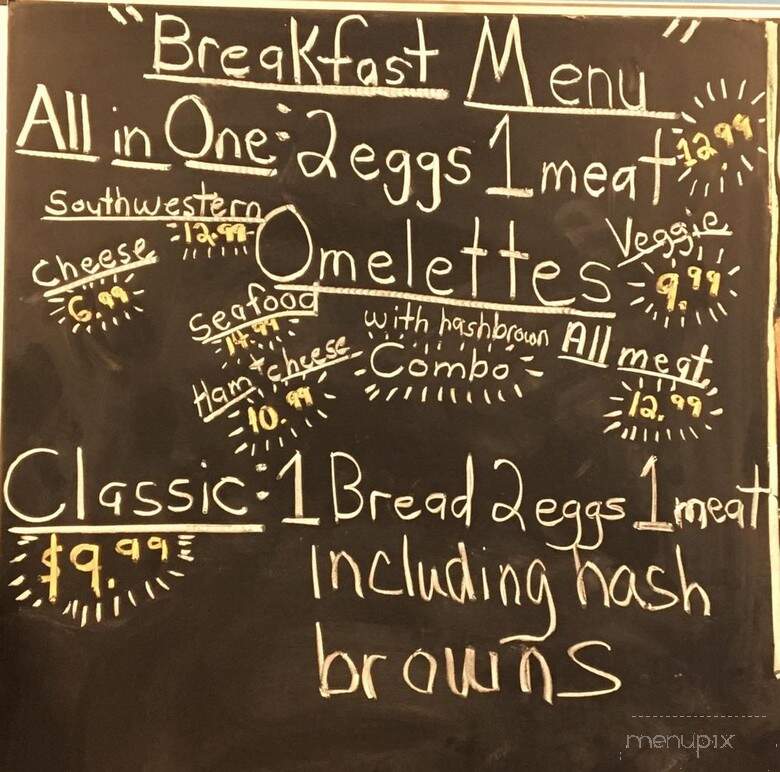 "Breakfast Menu"
All in One: 2 eggs 1 meat 12.99
Southwestern
12.99
Omelettes
Veggie
9.99
Cheese
6.99
Seafood
14.99
with hashbrown
Combo
All meat
12.99
Ham + cheese
10.99
Classic: 1 Bread 2 eggs 1 meat
$9.99
Including hash
browns
menupix